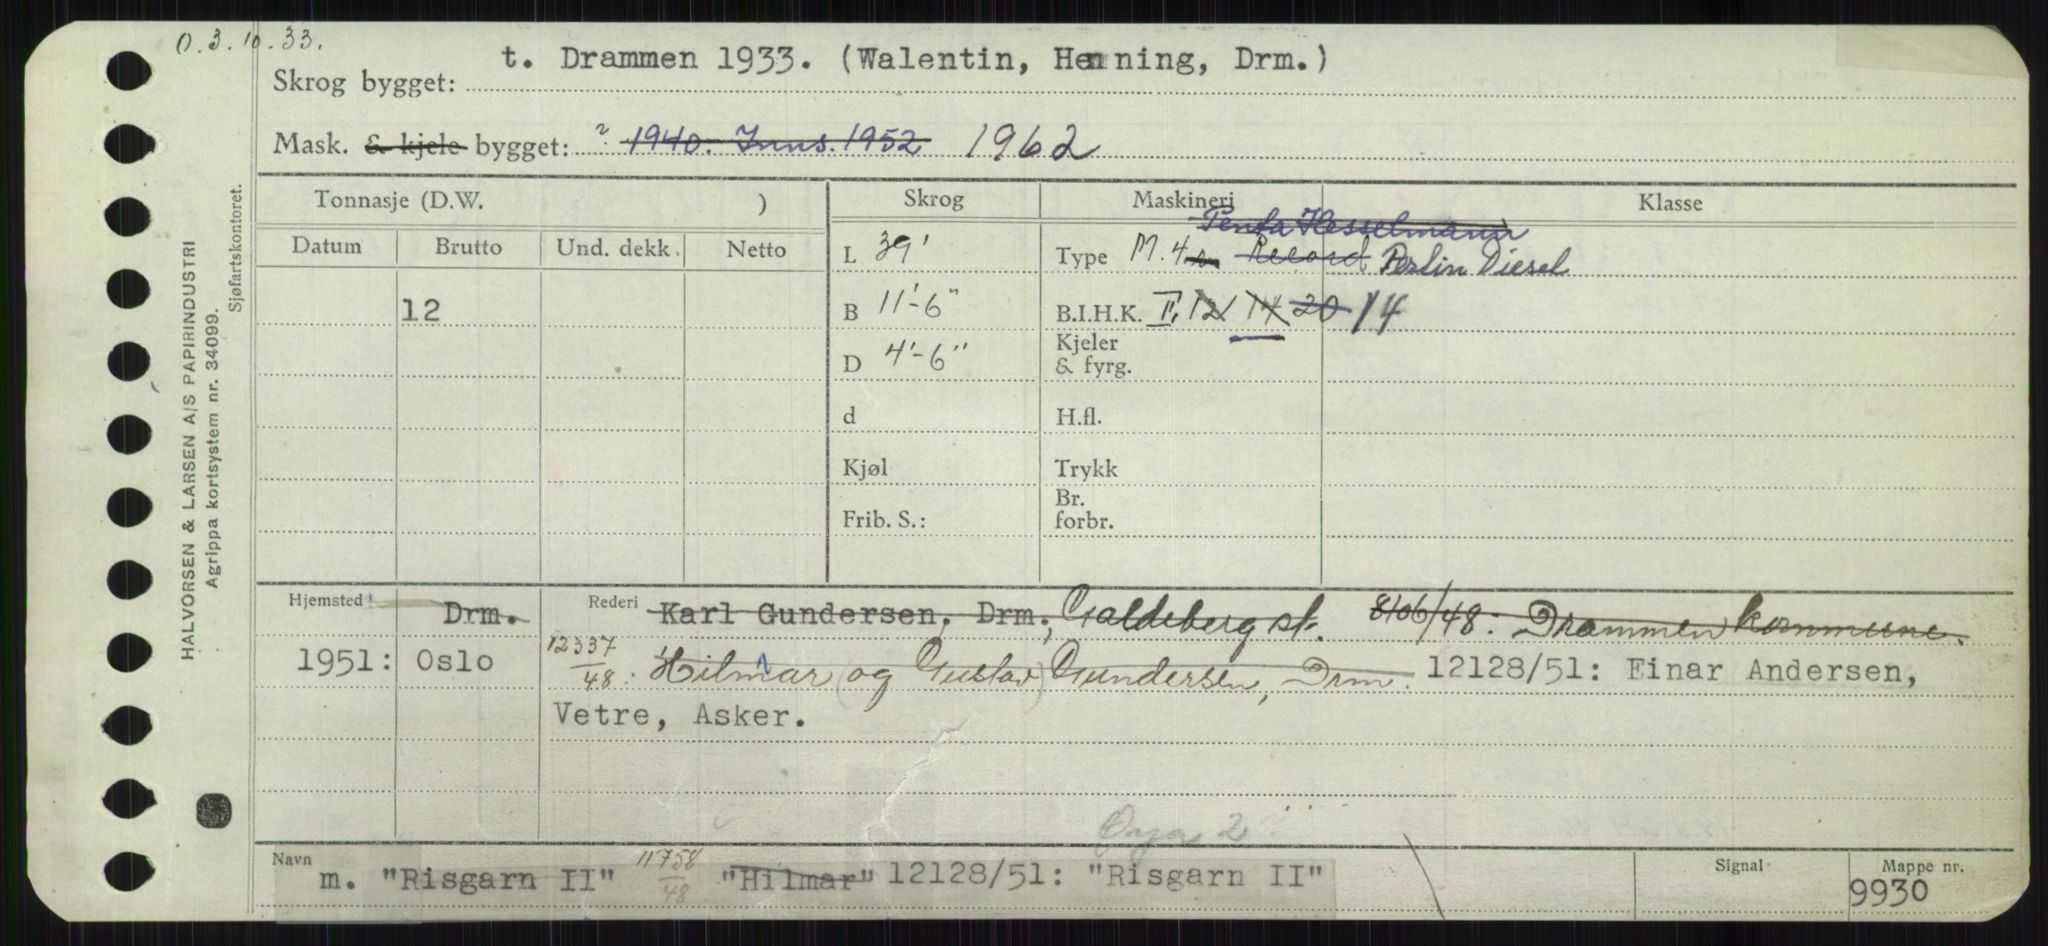 O.3.10.33.
t. Drammen 1933. (Walentin, Henning, Drm.)
Skrog bygget:
Mask. & kjele bygget: 1940. Inns. 1952 1962
Tonnasje (D.W. ) Skrog Maskineri Klasse
Penta Hesselmann
Datum Brutto Und. dekk. Netto L 39' Type M. 4 Record Perlin Diesel
12 B 11'-6" B.I.H.K. II, 12 14 20 14
D 4'-6" Kjeler & fyrg.
d H.fl.
Kjøl Trykk
Frib. S.: Br. forbr.
Hjemsted Drm. Rederi Karl Gundersen, Drm., Galdeberg st. 8106/48: Drammen kommune.
1951: Oslo 12337/48: Hilmar (og Gustav) Gundersen, Drm. 12128/51: Einar Andersen,
Vetre, Asker.
Øya 2
Navn m. "Risgarn II" 11758/48 "Hilmar" 12128/51: "Risgarn II" Signal Mappe nr. 9930
HALVORSEN & LARSEN A/S PAPIRINDUSTRI
Agrippa kortsystem nr. 34099.
Sjøfartskontoret.